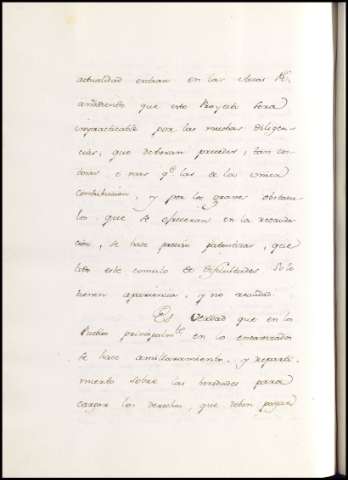 actualidad entran en las Arcas Rs.
añadiendo que este Proyecto sera
impracticable por las muchas diligen
cias, que deberan preceder, tan cos
tosas, o mas qe. las de la unica
Contribucion, y por los graves obstacu
los que se ofreceran en la recauda
cion, se hace preciso patentizar, que
todo este cumulo de dificultades solo
tienen apariencia, y no realidad.
Es verdad que en los
Pueblos principalmte. en los encavezados
se hace amillaramiento, y reparti
miento sobre las heredades para
cargar los derechos, que deben pagar